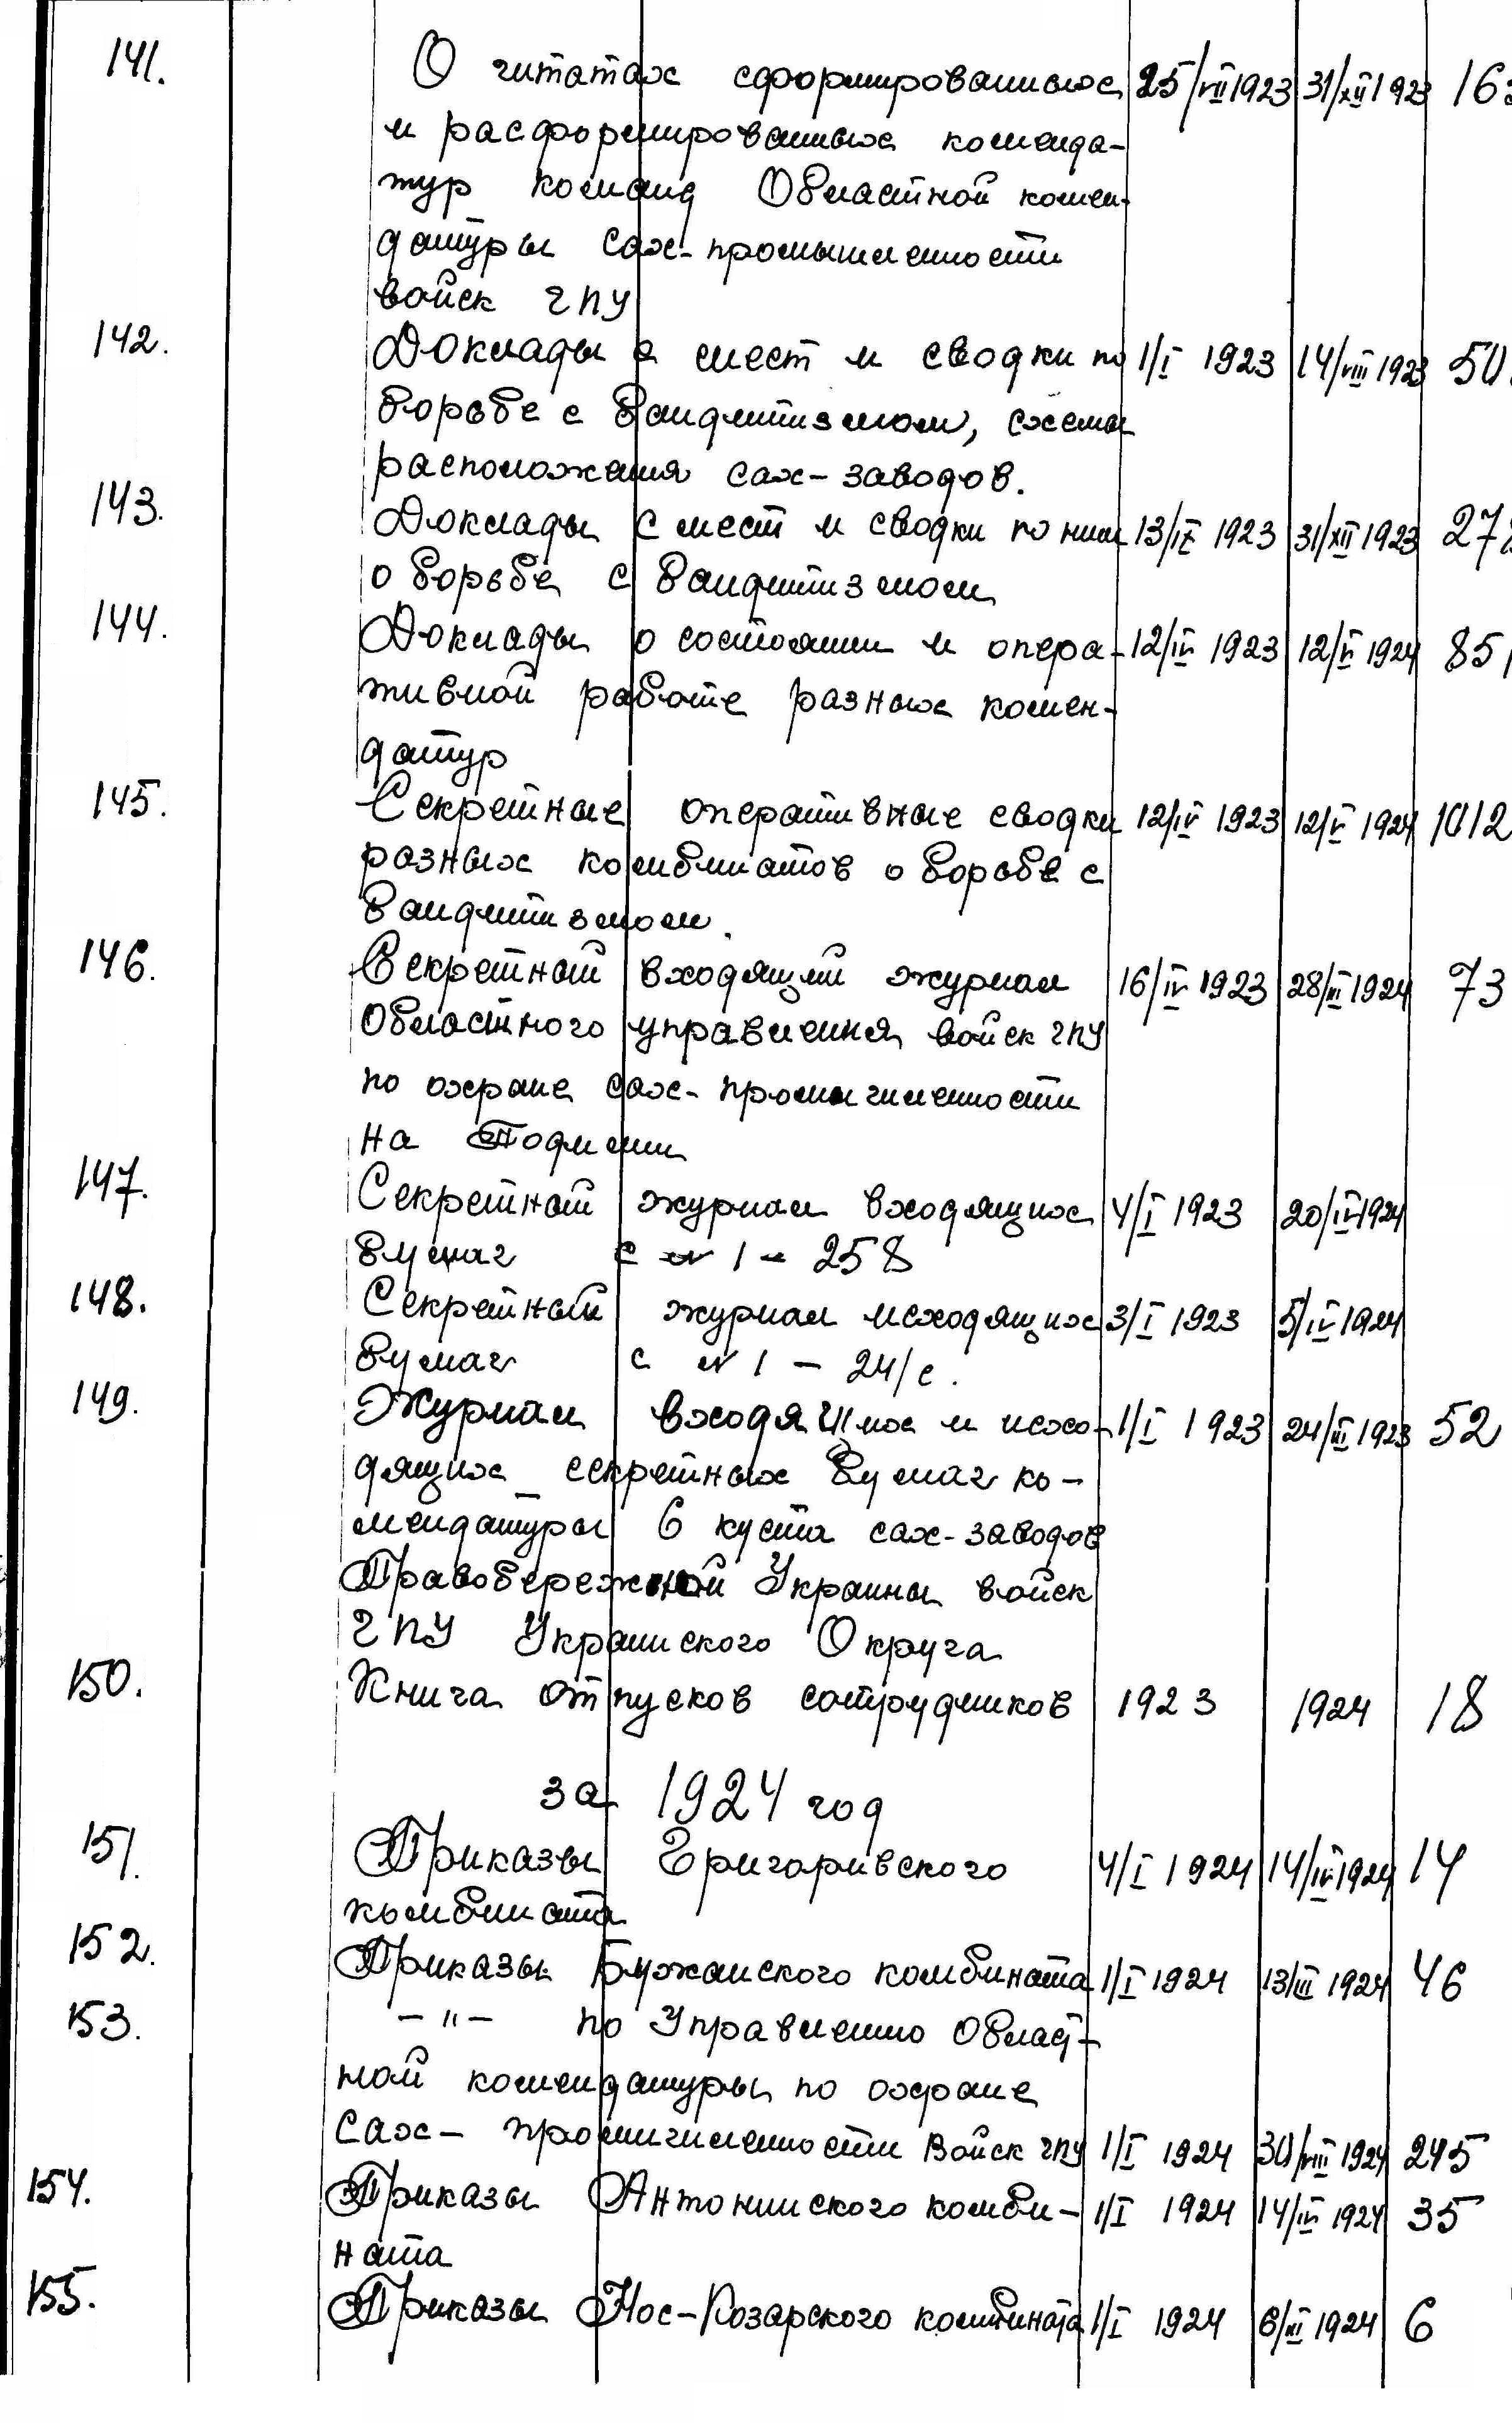 141. О штатах сформированных 25/VII 1923 31/XII 1923
и расформированных коменда-
тур команд Областной комен-
датуры сах-промышленности
войск ГПУ
142. Доклады с мест и сводки по 1/I 1923 14/VIII 1923 50
борьбе с бандитизмом, схемы
расположения сах-заводов.
143. Доклады с мест и сводки по ним 13/IX 1923 31/XII 1923
о борьбе с бандитизмом
144. Доклады о состоянии и опера- 12/IV 1923 12/V 1924 85
тивной работе разных комен-
датур
145. Секретные оперативные сводки 12/IV 1923 12/V 1924 1012
разных комбинатов о борьбе с
бандитизмом.
146. Секретный входящий журнал 16/IV 1923 28/III 1924 73
Областного управления войск ГПУ
по охране сах-промышленности
на Подолии
147. Секретный журнал входящих 4/I 1923 20/IV 1924
бумаг с № 1 - 258
148. Секретный журнал исходящих 3/I 1923 5/IV 1924
бумаг с № 1 - 24/с.
149. Журнал входящих и исхо- 1/I 1923 24/III 1923 52
дящих секретных бумаг ко-
мендатуры 6 куста сах-заводов
Правобережной Украины войск
ГПУ Украинского Округа
150. Книга отпусков сотрудников 1923 1924 18
за 1924 год
151. Приказы Григоривского 4/I 1924 14/IV 1924 14
комбината
152. Приказы Бужанского комбината 1/I 1924 13/III 1924 46
153. -"- по Управлению Област-
ной комендатуры по охране
сах- промышленности войск ГПУ 1/I 1924 30/VIII 1924 245
154. Приказы Антонинского комби- 1/I 1924 14/IV 1924 35
ната
155. Приказы Нос-Козарского комбината 1/I 1924 6/III 1924 6